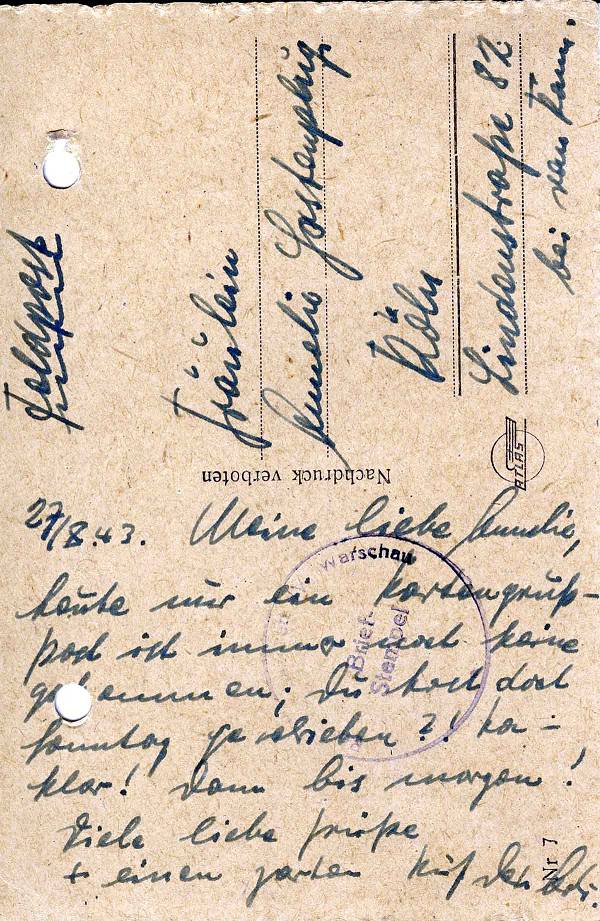 Feldpost
Fräulein
Annelie
Köln
Lindenstraße 82
bei
Nachdruck verboten
ATLAS
27/X.43. Meine liebe Annelie,
heute nur ein Kartengruß-
post ist immer noch keine
gekommen; Du hast doch
Sonntag geschrieben?! na-
klar! Dann bis morgen!
Viele liebe Grüße
+ einen zarten Kuß Dein
Warschau
Brief-
Stempel
Nr 7